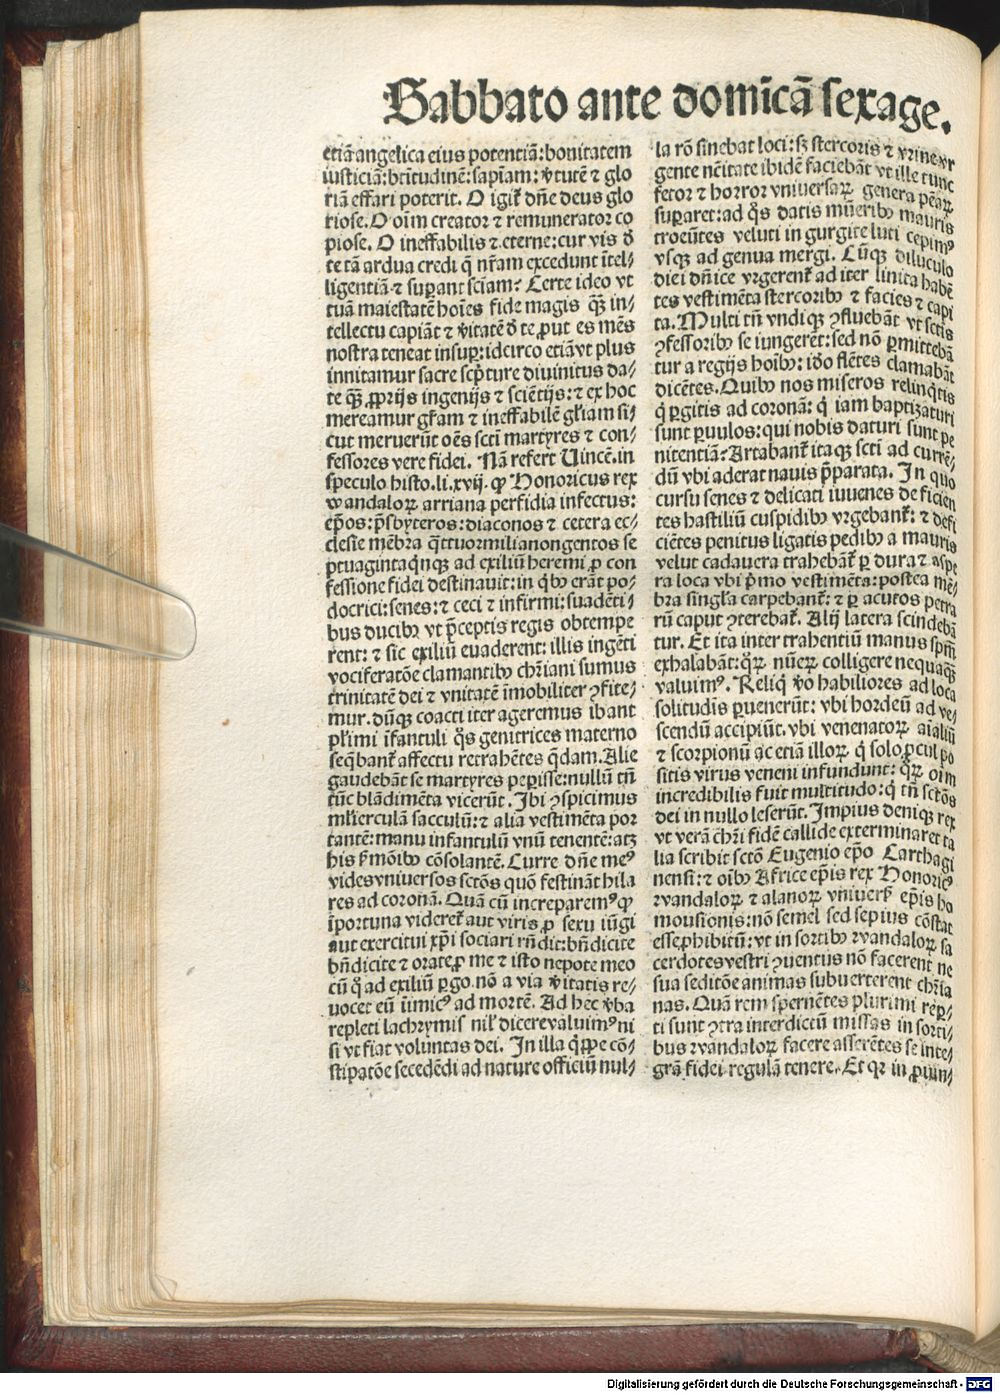 Sabbato ante domīcā sexage.
etiā angelica eius potentiā: bonitatem
iusticiā: btītudinē: sapīam: v̄tutē ⁊ glo
riā effari poterit. O igit᷑ dn̄e deus glo
riose. O oīm creator ⁊ remunerator co
piose. O ineffabilis ⁊ eterne: cur vis d̄
te tā ardua credi q̄ nr̄am excedunt ītel⸗
ligentiā ⁊ suꝑant sciam? Certe ideo vt
tuā maiestatē hoīes fide magis qꝫ in⸗
tellectu capiāt ⁊ v̄itatē d̄ te ꝓut es mēs
nostra teneat insuꝑ: idcirco etiā vt plus
innitamur sacre scp̄ture diuinitus da⸗
te qꝫ ꝓprijs ingenijs ⁊ sciētijs: ⁊ ex hoc
mereamur gr̄am ⁊ ineffabilē gl̄iam si⸗
cut meruerūt oēs scti martyres ⁊ con⸗
fessores vere fidei. Nā refert Uincē. in
speculo histo. li. xvij. ꝙ Honoricus rex
wandaloꝝ arriana perfidia infectus:
ep̄os: p̄sbyteros: diaconos ⁊ cetera ec⸗
clesie mēbra q̄ttuormilianongentos se
ptuagintaqn̄qꝫ ad exiliū heremi ꝓ con
fessione fidei destinauit: in qbꝰ erāt po⸗
docrici: senes: ⁊ ceci ⁊ infirmi: suadēti⸗
bus ducibꝰ vt p̄ceptis regis obtempe
rent: ⁊ sic exiliū euaderent: illis ingēti
vociferatōe clamantibꝰ chr̄iani sumus
trinitatē dei ⁊ vnitatē īmobiliter ꝯfite⸗
mur. dūqꝫ coacti iter ageremus ibant
pl̄imi īfantuli q̊s genitrices materno
seq̄bant᷑ affectu retrahētes q̄dam. Alie
gaudebāt se martyres peꝑisse: nullū tn̄
tūc blādimēta vicerūt. Ibi ꝯspicimus
ml̄ierculā sacculū: ⁊ alia vestimēta por
tantē: manu infantulū vnū tenentē: atꝫ
his s̄mōibꝰ cōsolantē. Curre dn̄e meꝰ
vides vniuersos sctōs quō festināt hila
res ad coronā. Quā cū increparemꝰ ꝙ
īportuna videret᷑ aut viris ꝓ sexu iūgi
aut exercitui xp̄i sociari rn̄dit: bn̄dicite
bn̄dicite ⁊ orate ꝓ me ⁊ isto nepote meo
cū q̊ ad exiliū ꝑgo. nō a via v̄itatis re⸗
uocet eū īimicꝰ ad mortē. Ad hec v̄ba
repleti lachrymis nil᷑ dicere valuimꝰ ni
si vt fiat voluntas dei. In illa q̄ꝑpe cō⸗
stipatōe secedēdi ad nature officiū nul⸗
la rō sinebat loci: sꝫ stercoris ⁊ vrine vr
gente nc̄itate ibidē faciebāt vt ille tunc
fetor ⁊ horror vniuersaꝝ genera pēaꝝ
suꝑaret: ad q̊s datis mūeribꝰ mauris
troeūtes veluti in gurgite luti cepimꝰ
vsqꝫ ad genua mergi. Cūqꝫ diluculo
diei dn̄ice vrgerent᷑ ad iter linita habē
tes vestimēta stercoribꝰ ⁊ facies ⁊ capi
ta. Multi tn̄ vndiqꝫ ꝯfluebāt vt sctis
ꝯfessoribꝰ se iungerēt: sed nō ꝑmittebā
tur a regijs hoībꝰ: idō flētes clamabāt
dicētes. Quibꝰ nos miseros relinq̄tis
q̄ ꝑgitis ad coronā: q̄ iam baptizaturi
sunt ꝑuulos: qui nobis daturi sunt pe
nitentiā? Artabant᷑ itaqꝫ scti ad curre⸗
dū vbi aderat nauis p̄parata. In quo
cursu senes ⁊ delicati iuuenes deficien
tes hastiliū cuspidibꝰ vrgebant᷑: ⁊ defi
ciētes penitus ligatis pedibꝰ a mauris
velut cadauera trahebant᷑ ꝑ dura ⁊ aspe
ra loca vbi p̄mo vestimēta: postea mē⸗
bra singl̄a carpebant᷑: ⁊ ꝑ acutos petra
rū caput ꝯterebat᷑. Alij latera scindebā
tur. Et ita inter trahentiū manus sp̄m̄
exhalabāt: q̊ꝝ nūeꝝ colligere nequaqꝫ
valuimꝰ. Reliq̄ v̄o habiliores ad loca
solitudis ꝑuenerūt: vbi hordeū ad ve⸗
scendū accipiūt. vbi venenatoꝝ aīaliū
⁊ scorpionū ac etiā illoꝝ q̄ solo ꝓcul po
sitis virus veneni infundunt: q̊ꝝ oīm
incredibilis fuit multitudo: q̄ tn̄ sctōs
dei in nullo leserūt. Impius deniqꝫ rex
vt verā chr̄i fidē callide exterminaret ta
lia scribit sctō Eugenio ep̄o Carthagi
nensi: ⁊ oībꝰ Africe ep̄is rex Honoricꝰ
rvandaloꝝ ⁊ alanoꝝ vniuers᷑ ep̄is ho
mousionis: nō semel sed sepius cōstat
esse ꝓhibitū: vt in sortibꝰ rvandaloꝝ sa
cerdotes vestri ꝯuentus nō facerent ne
sua seditōe animas subuerterent chr̄ia
nas. Quā rem spernētes plurimi reꝑ⸗
ti sunt ꝯtra interdictū missas in sorti⸗
bus rvandaloꝝ facere asserētes se inte⸗
grā fidei regulā tenere. Et qꝛ in ꝓuin⸗
Digitalisierung gefördert durch die Deutsche Forschungsgemeinschaft - DFG